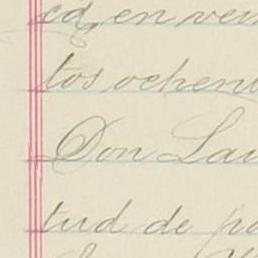 ed, en vein
tos ochent
Don Lau
tud de po